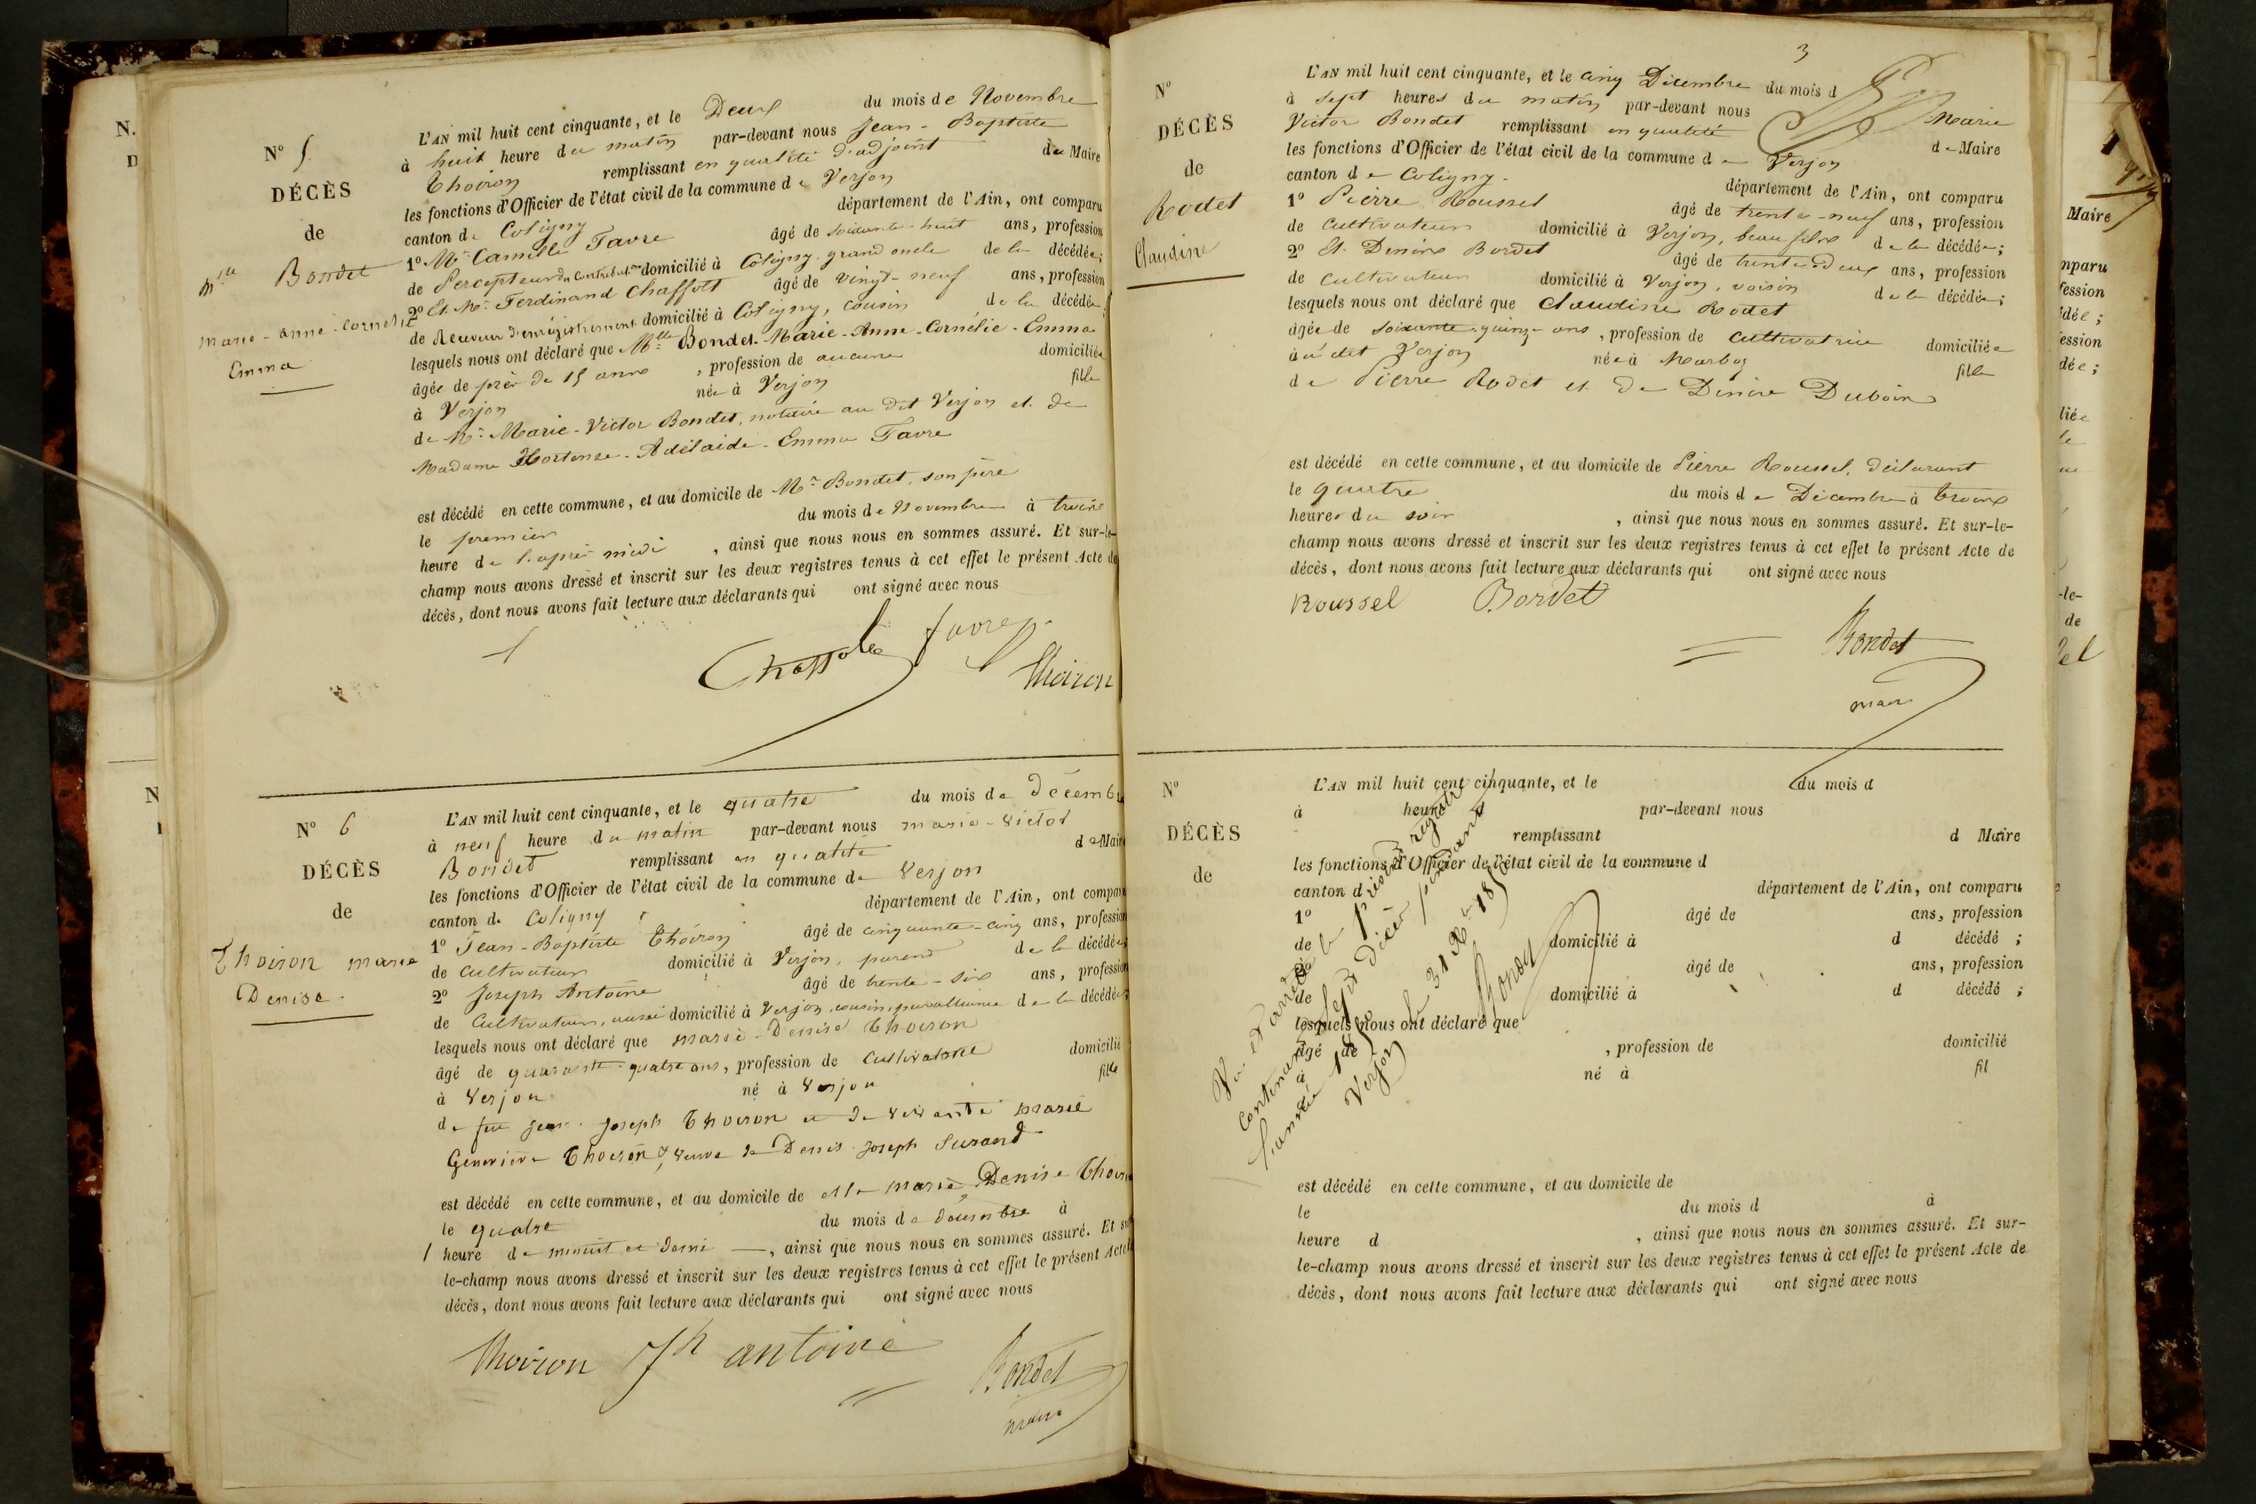 N° 5.
DÉCÈS
de
Mlle Bondet
Marie-Anne-Cornélie
Emma
L'AN mil huit cent cinquante, et le Deux du mois de Novembre
à huit heure du matin par-devant nous Jean-Baptiste
Thoiron remplissant en qualité d'adjoint du Maire
les fonctions d'Officier de l'état civil de la commune de Verjon
canton de Coligny département de l'Ain, ont comparu
1° Mr Camille Favre âgé de soixante-huit ans, profession
de Percepteur des Contributions domicilié à Coligny grand oncle de la décédée;
2° Et Mr Ferdinand Chaffott âgé de vingt-neuf ans, profession
de Receveur d'enregistrement domicilié à Coligny, cousin de la décédée;
lesquels nous ont déclaré que Mlle Bondet Marie-Anne-Cornélie-Emma
âgée de près de 15 anne , profession de aucune domiciliée
à Verjon née à Verjon fille
de Mr Marie-Victor Bondet, notaire au dit Verjon et de
Madame Hortense-Adélaïde-Emma Favre
est décédé en cette commune, et au domicile de Mr Bondet, son père
le premier du mois de Novembre à trois
heure de l'après midi , ainsi que nous nous en sommes assuré. Et sur-le-
champ nous avons dressé et inscrit sur les deux registres tenus à cet effet le présent Acte de
décès, dont nous avons fait lecture aux déclarants qui ont signé avec nous
favre
Thoiron
N° 6
DÉCÈS
de
Thoiron marie
Denise.
L'AN mil huit cent cinquante, et le quatre du mois de décembre
à neuf heure du matin par-devant nous marie-victor
Bondet remplissant en qualité de Maire
les fonctions d'Officier de l'état civil de la commune de Verjon
canton de Coligny département de l'Ain, ont comparu
1° Jean-Baptiste Thoiron âgé de cinquante-cinq ans, profession
de Cultivateur domicilié à Verjon, parent de la décédée;
2° Joseph Antoine âgé de trente-six ans, profession
de Cultivateur, aussi domicilié à Verjon, cousin par alliance de la décédée;
lesquels nous ont déclaré que marie-Denise Thoiron
âgé de quarante-quatre ans, profession de Cultivatrice domicilié
à Verjon né à Verjon fille
de feu jean-joseph Thoiron et de vivante marie
Geneviève Thoiron, veuve de Denis joseph Surand
est décédé en cette commune, et au domicile de elle marie Denise Thoiron
le quatre du mois de décembre à
1 heure de minuit et demi —, ainsi que nous nous en sommes assuré. Et sur
le-champ nous avons dressé et inscrit sur les deux registres tenus à cet effet le présent Acte de
décès, dont nous avons fait lecture aux déclarants qui ont signé avec nous
Thoiron Jh antoine Bondet
maire
3
N°
DÉCÈS
de
Rodet
Claudine
L'AN mil huit cent cinquante, et le cinq Décembre du mois d
à sept heures du matin par-devant nous Marie
Victor Bondet remplissant en qualité de Maire
les fonctions d'Officier de l'état civil de la commune de Verjon
canton de Coligny. département de l'Ain, ont comparu
1° Pierre Roussel âgé de trente-neuf ans, profession
de cultivateur domicilié à Verjon, beau fils de la décédée;
2° Et Denis Bordet âgé de trente-deux ans, profession
de cultivateur domicilié à Verjon, voisin de la décédée;
lesquels nous ont déclaré que Claudine Rodet
âgée de soixante-quinze ans , profession de cultivatrice domiciliée
à u dit Verjon née à Marboz fille
de Pierre Rodet et de Denise Dubois
est décédé en cette commune, et au domicile de Pierre Roussel, déclarant
le quatre du mois de Décembre à trois
heures du soir , ainsi que nous nous en sommes assuré. Et sur-le-
champ nous avons dressé et inscrit sur les deux registres tenus à cet effet le présent Acte de
décès, dont nous avons fait lecture aux déclarants qui ont signé avec nous
Roussel Bordet
Bondet
maire
N°
DÉCÈS
de
L'AN mil huit cent cinquante, et le du mois d
à heure d par-devant nous
remplissant d Maire
les fonctions d'Officier de l'état civil de la commune d
canton d département de l'Ain, ont comparu
1° âgé de ans, profession
de domicilié à d décédé ;
2° âgé de ans, profession
de domicilié à d décédé ;
lesquels nous ont déclaré que
âgé de , profession de domicilié
à né à fil
d
est décédé en cette commune, et au domicile de
le du mois d à
heure d , ainsi que nous nous en sommes assuré. Et sur-
le-champ nous avons dressé et inscrit sur les deux registres tenus à cet effet le présent Acte de
décès, dont nous avons fait lecture aux déclarants qui ont signé avec nous
Vu et arrêté le présent registre
contenant sept décès pendant
l'année 1850
Verjon le 31 Xbre 1850
Bondet